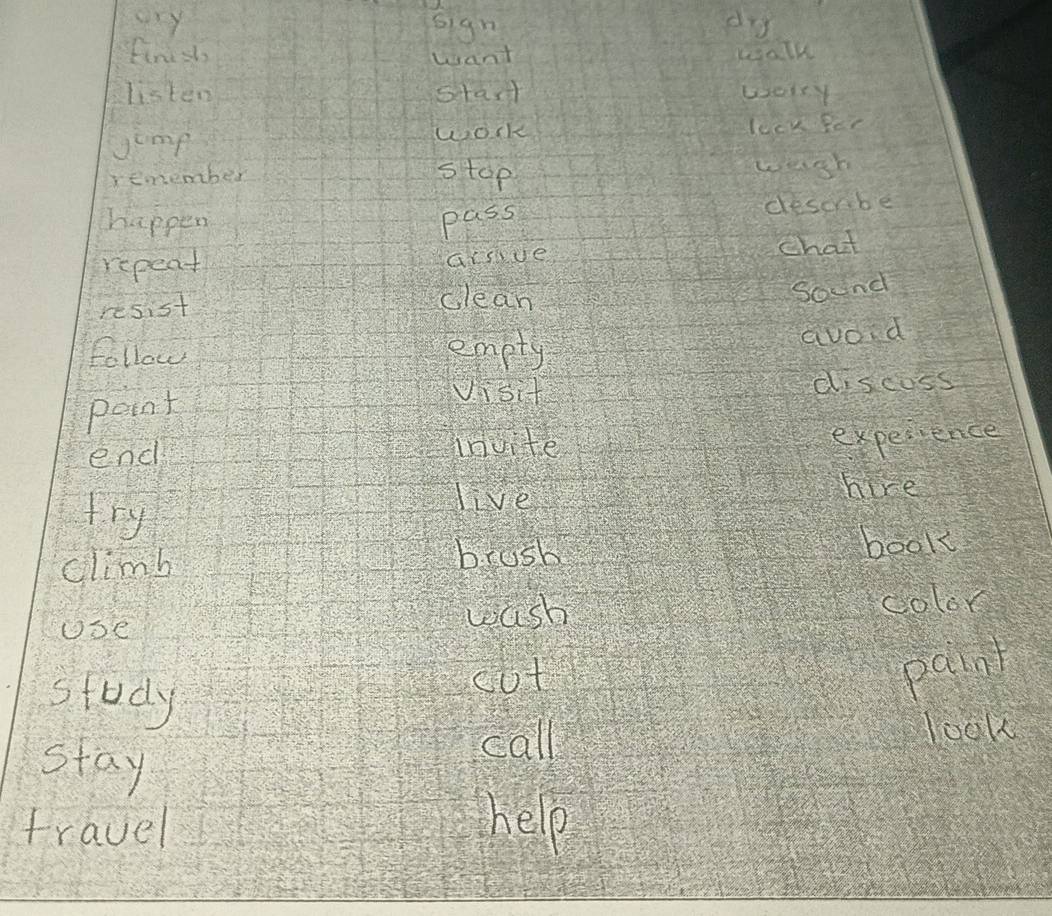 cry sign dry
finish want walk
listen start worry
jump work look for
remember stop weigh
happen pass describe
repeat arrive chat
resist clean sound
follow empty avoid
point visit discuss
end invite experience
try live hire
climb brush book
use wash color
study cut paint
stay call look
travel help